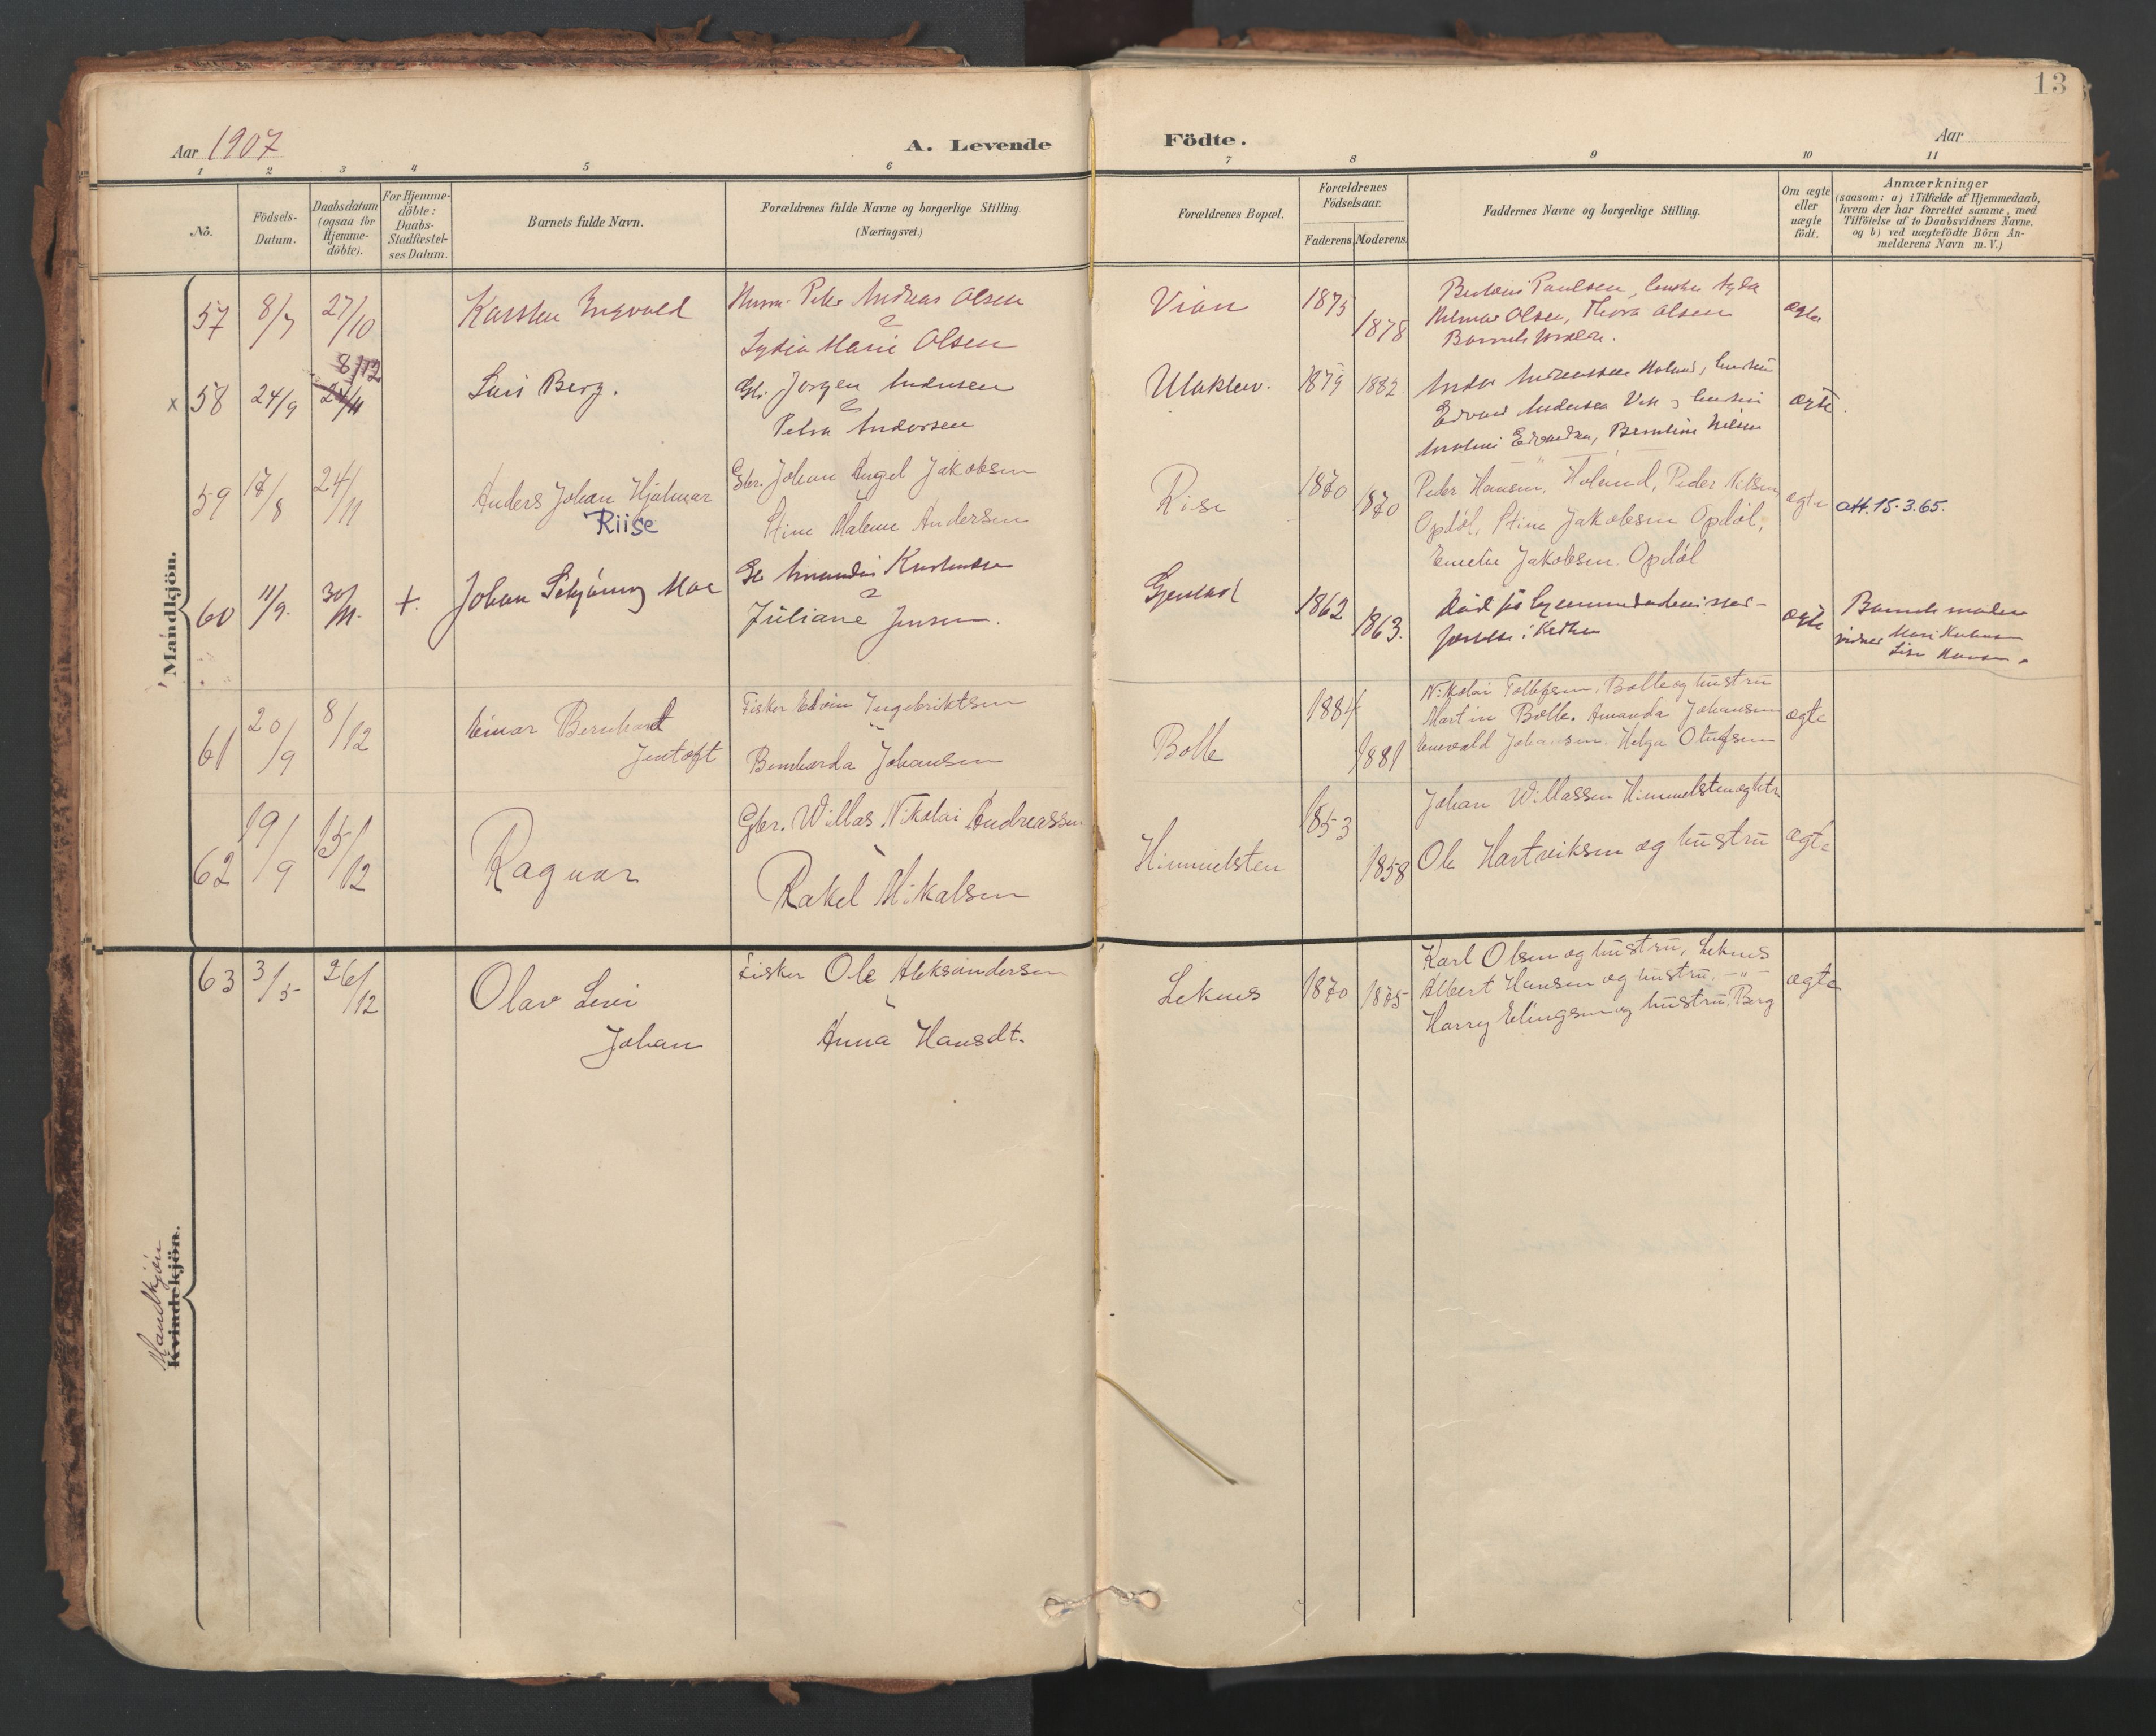 13
Aar 1907
A. Levende
Födte.
Aar
1 2 3 4 5 6 7 8 9 10 11
No.
Födsels-
Datum.
Daabsdatum
(ogsaa för
Hjemme-
döbte).
For Hjemme-
döbte:
Daabs-
Stadfæstel-
ses Datum.
Barnets fulde Navn.
Forældrenes fulde Navne og borgerlige Stilling.
(Næringsvei.)
Forældrenes Bopæl.
Forældrenes
Födselsaar.
Faderens Moderens
Faddernes Navne og borgerlige Stilling.
Om ægte
eller
uægte
födt.
Anmærkninger
(saasom: a) i Tilfælde af Hjemmedaab,
hvem der har forrettet samme, med
Tilföielse af to Daabsvidners Navne,
og b) ved uægtefödte Börn An-
melderens Navn m.V.)
Mandkjön.
57 8/7 27/10
Karsten Ingvald
Peter Andreas Olsen
Lydia Marie Olsen
1875
1878
Paulsen,
Hilmar Olsen, Thora Olsen
ægte
x 58 24/9 24/11
8/12
Berg.
Jörgen Andersen
Petra Andersen
1879 1882
ægte
59 17/8 24/11
Anders Johan Hjalmar
Riise
Gbr. Johan Angel Jakobsen
Stine Malene Andersen
Rise
1870
1870
Peder Hansen, Holand, Peder Nilsen
Opdöl, Stine Jakobsen Opdöl,
Emelie Jakobsen Opdöl
ægte
att. 15.3.65.
60 11/9. 30/11. +.
Johan
Juliane Jensen.
1862
1863.
ægte
61 20/9 8/12
Einar Bernhard
Jentoft
Fisker Edvin Ingebriktsen
Bernharda Johansen
Bolle
1884
1881
Nikolai Tollefsen, Bolle og hustru
Martin Bolle. Amanda Johansen
Enevald Johansen. Helga Olufsen
ægte
62 19/9 15/12
Ragnar
Gbr. Willas Nikolai Andreassen
Rakel Mikalsen
Himmelsten
1853
1858
Johan Willassen Himmelsten og htr.
Ole Hartviksen og hustru
ægte
Mandkjön
Kvindekjön.
63 3/5 26/12
Olav Levi
Johan
Fisker Ole Aleksandersen
Anna Hansdt.
Leknes
1870 1875
Karl Olsen og hustru, Leknes
Albert Hansen og hustru, -"-
Harry Elingsen og hustru, Berg
ægte